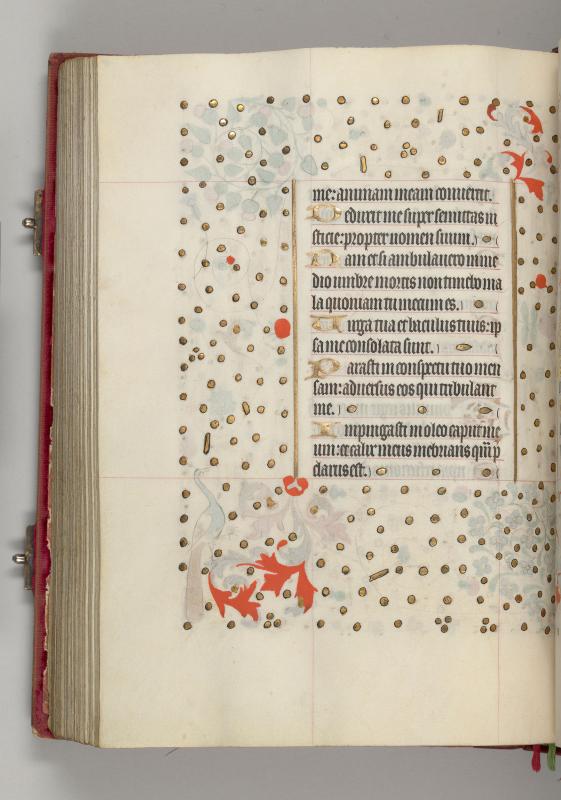 me: animam meam conuertit.
Deduxit me super semitas iu
sticie: propter nomen suum.
Nam et si ambulauero in me
dio umbre mortis non timebo ma
la quoniam tu mecum es.
Uirga tua et baculus tuus: ip
sa me consolata sunt.
Parasti in conspectu tuo men
sam: aduersus eos qui tribulant
me.
Inpingasti in oleo caput me
um: et calix meus inebrians quam p
clarus est.